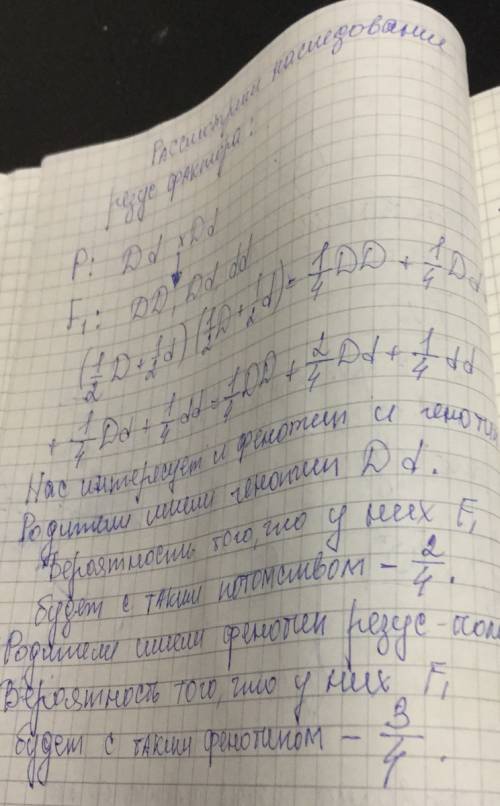 Рассмотрим наследование
резус фактора:
P: Dd x Dd
↓
F₁: DD, Dd, dd
(1/2 D + 1/2 d) (1/2 D + 1/2 d) = 1/4 DD + 1/4 Dd
+ 1/4 Dd + 1/4 dd = 1/4 DD + 2/4 Dd + 1/4 dd
Нас интересует и фенотип и генотип
Родители имели генотип Dd.
Вероятность того, что у них F₁
будет с таким потомством – 2/4.
Родители имели фенотип резус-
Вероятность того, что у них F₁
будет с таким фенотипом – 3/4.